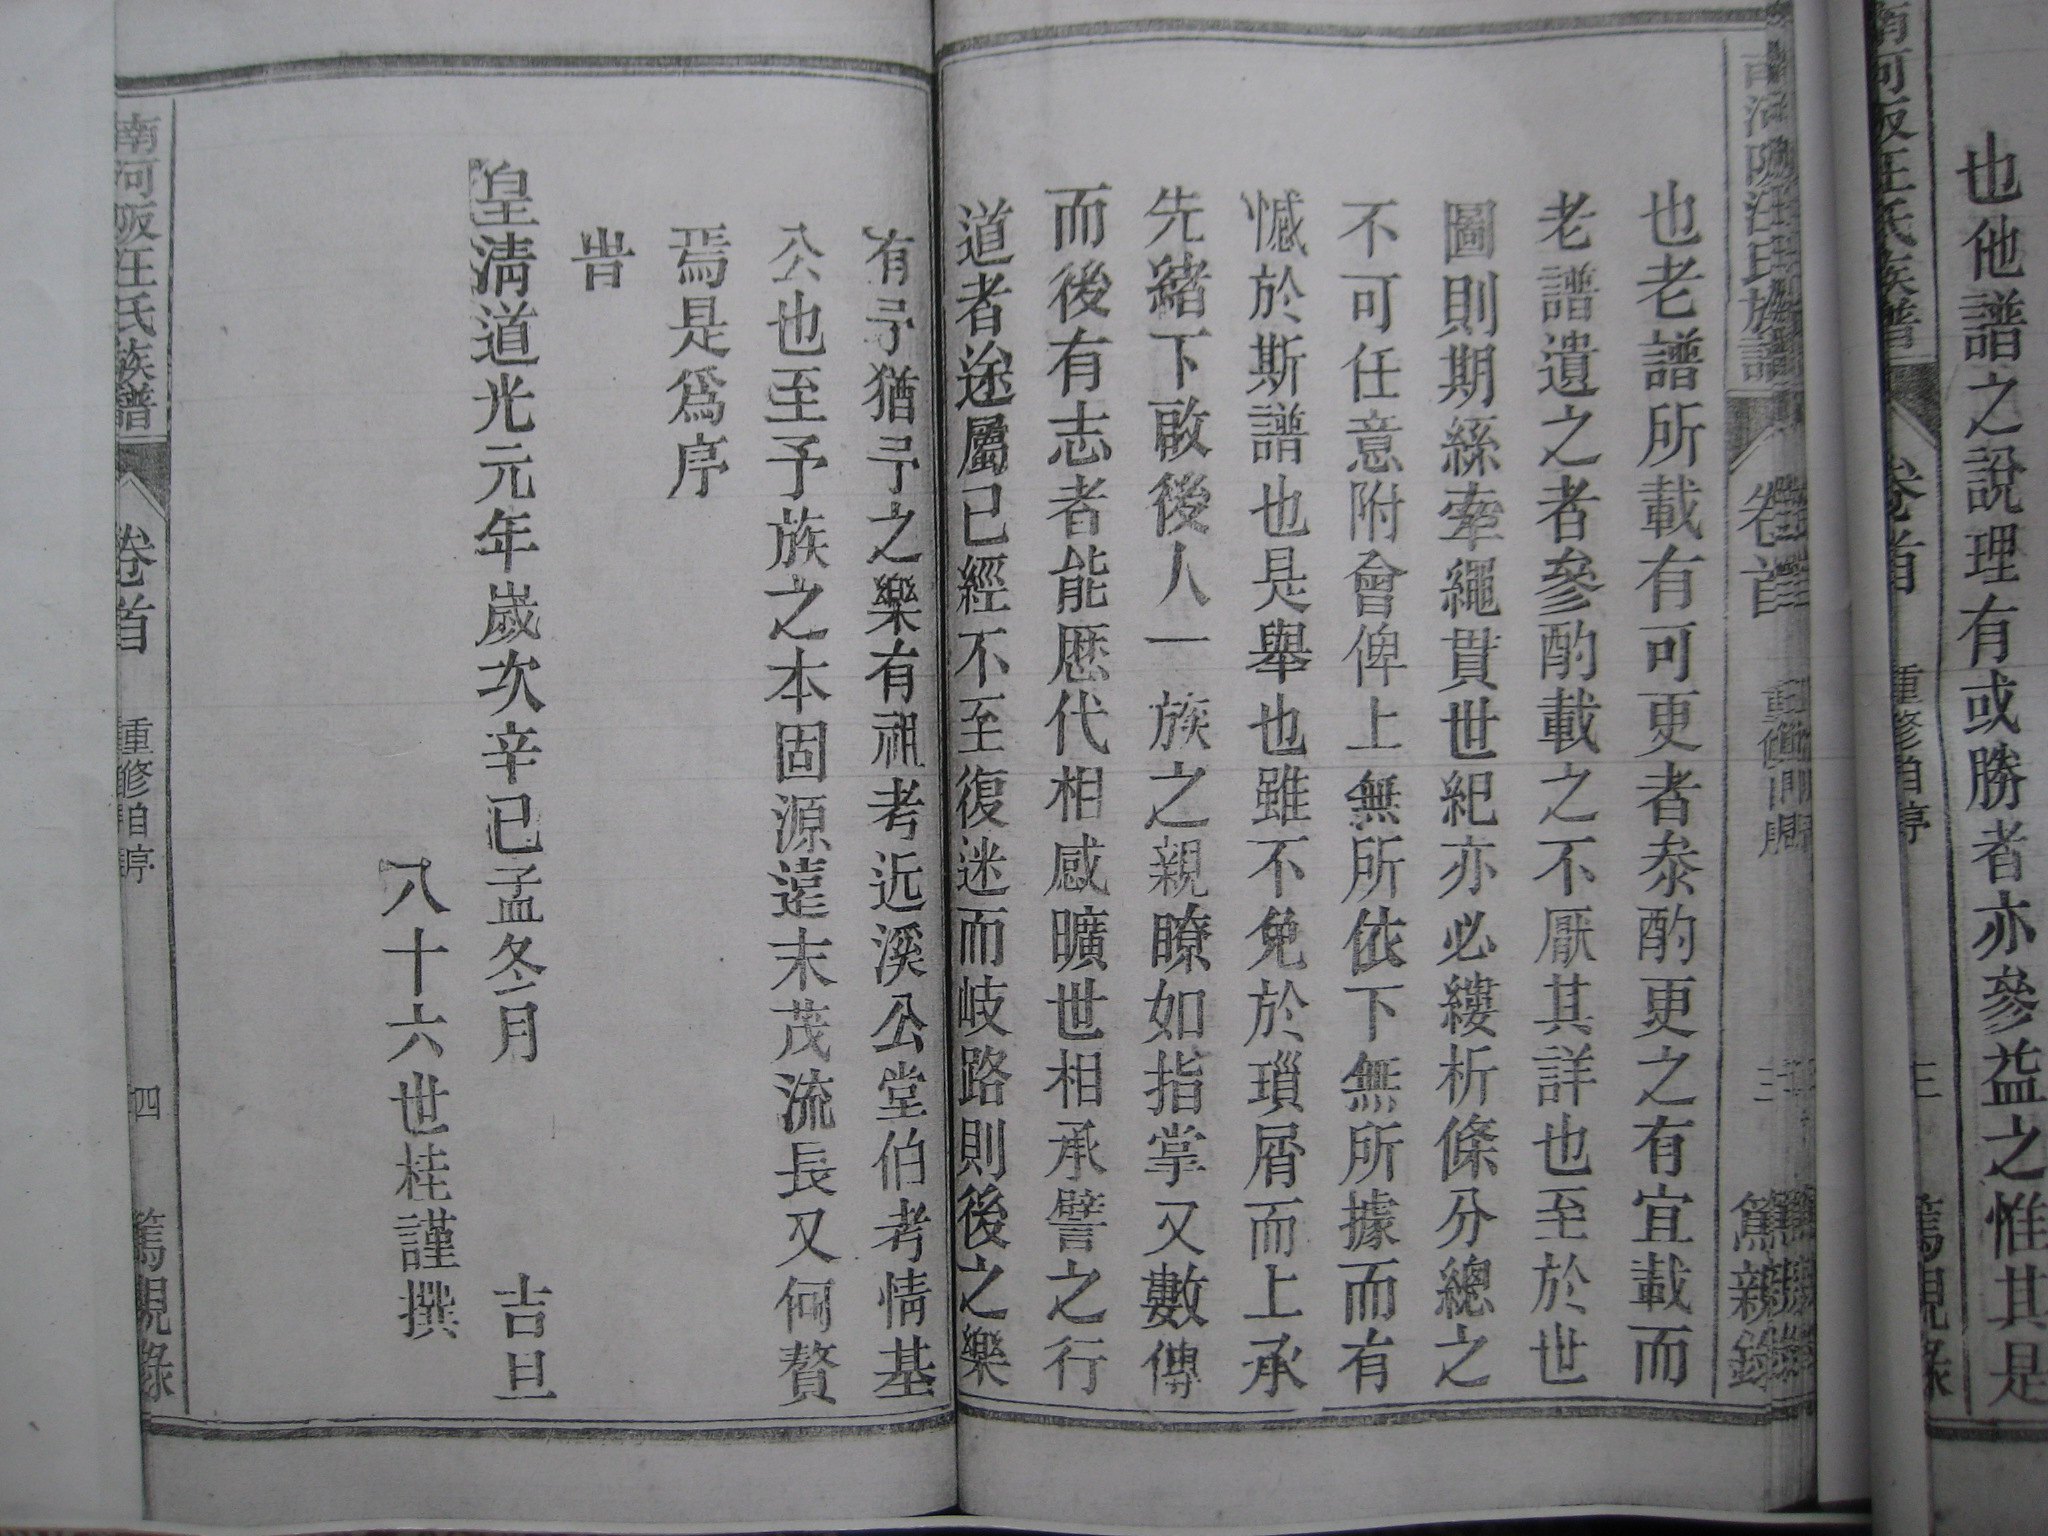 也他譜之說理有或勝者亦參益之惟其是
南河阪汪氏族譜
卷首
重修自序
三
篤親錄
也老譜所載有可更者叅酌更之有宜載而
老譜遺之者參酌載之不厭其詳也至於世
圖則期絲牽繩貫世紀亦必縷析條分總之
不可任意附會俾上無所依下無所據而有
憾於斯譜也是舉也雖不免於瑣屑而上承
先緒下啟後人一族之親瞭如指掌又數傳
而後有志者能歴代相感曠世相承譬之行
道者途屬已經不至復迷而岐路則後之樂
有予猶予之樂有祖考近溪公堂伯考情基
公也至予族之本固源遠末茂流長又何贅
焉是爲序
旹
皇清道光元年歲次辛巳孟冬月 吉旦
八十六世桂謹撰
南河阪汪氏族譜
卷首
重修自序
四
篤親錄